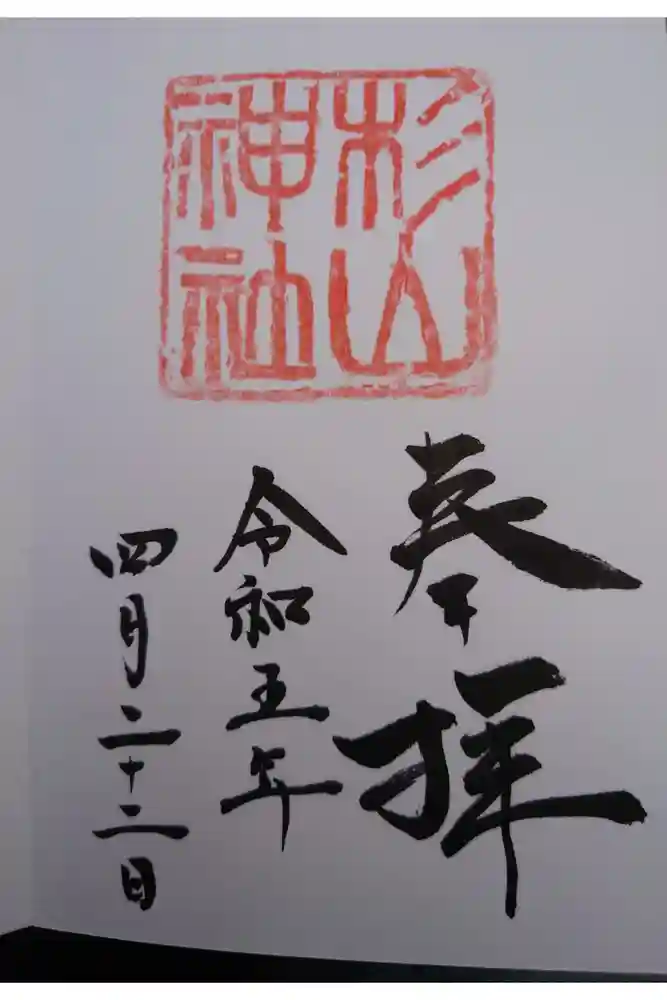 杉山
神社
奉拝
令和五年
四月二十二日